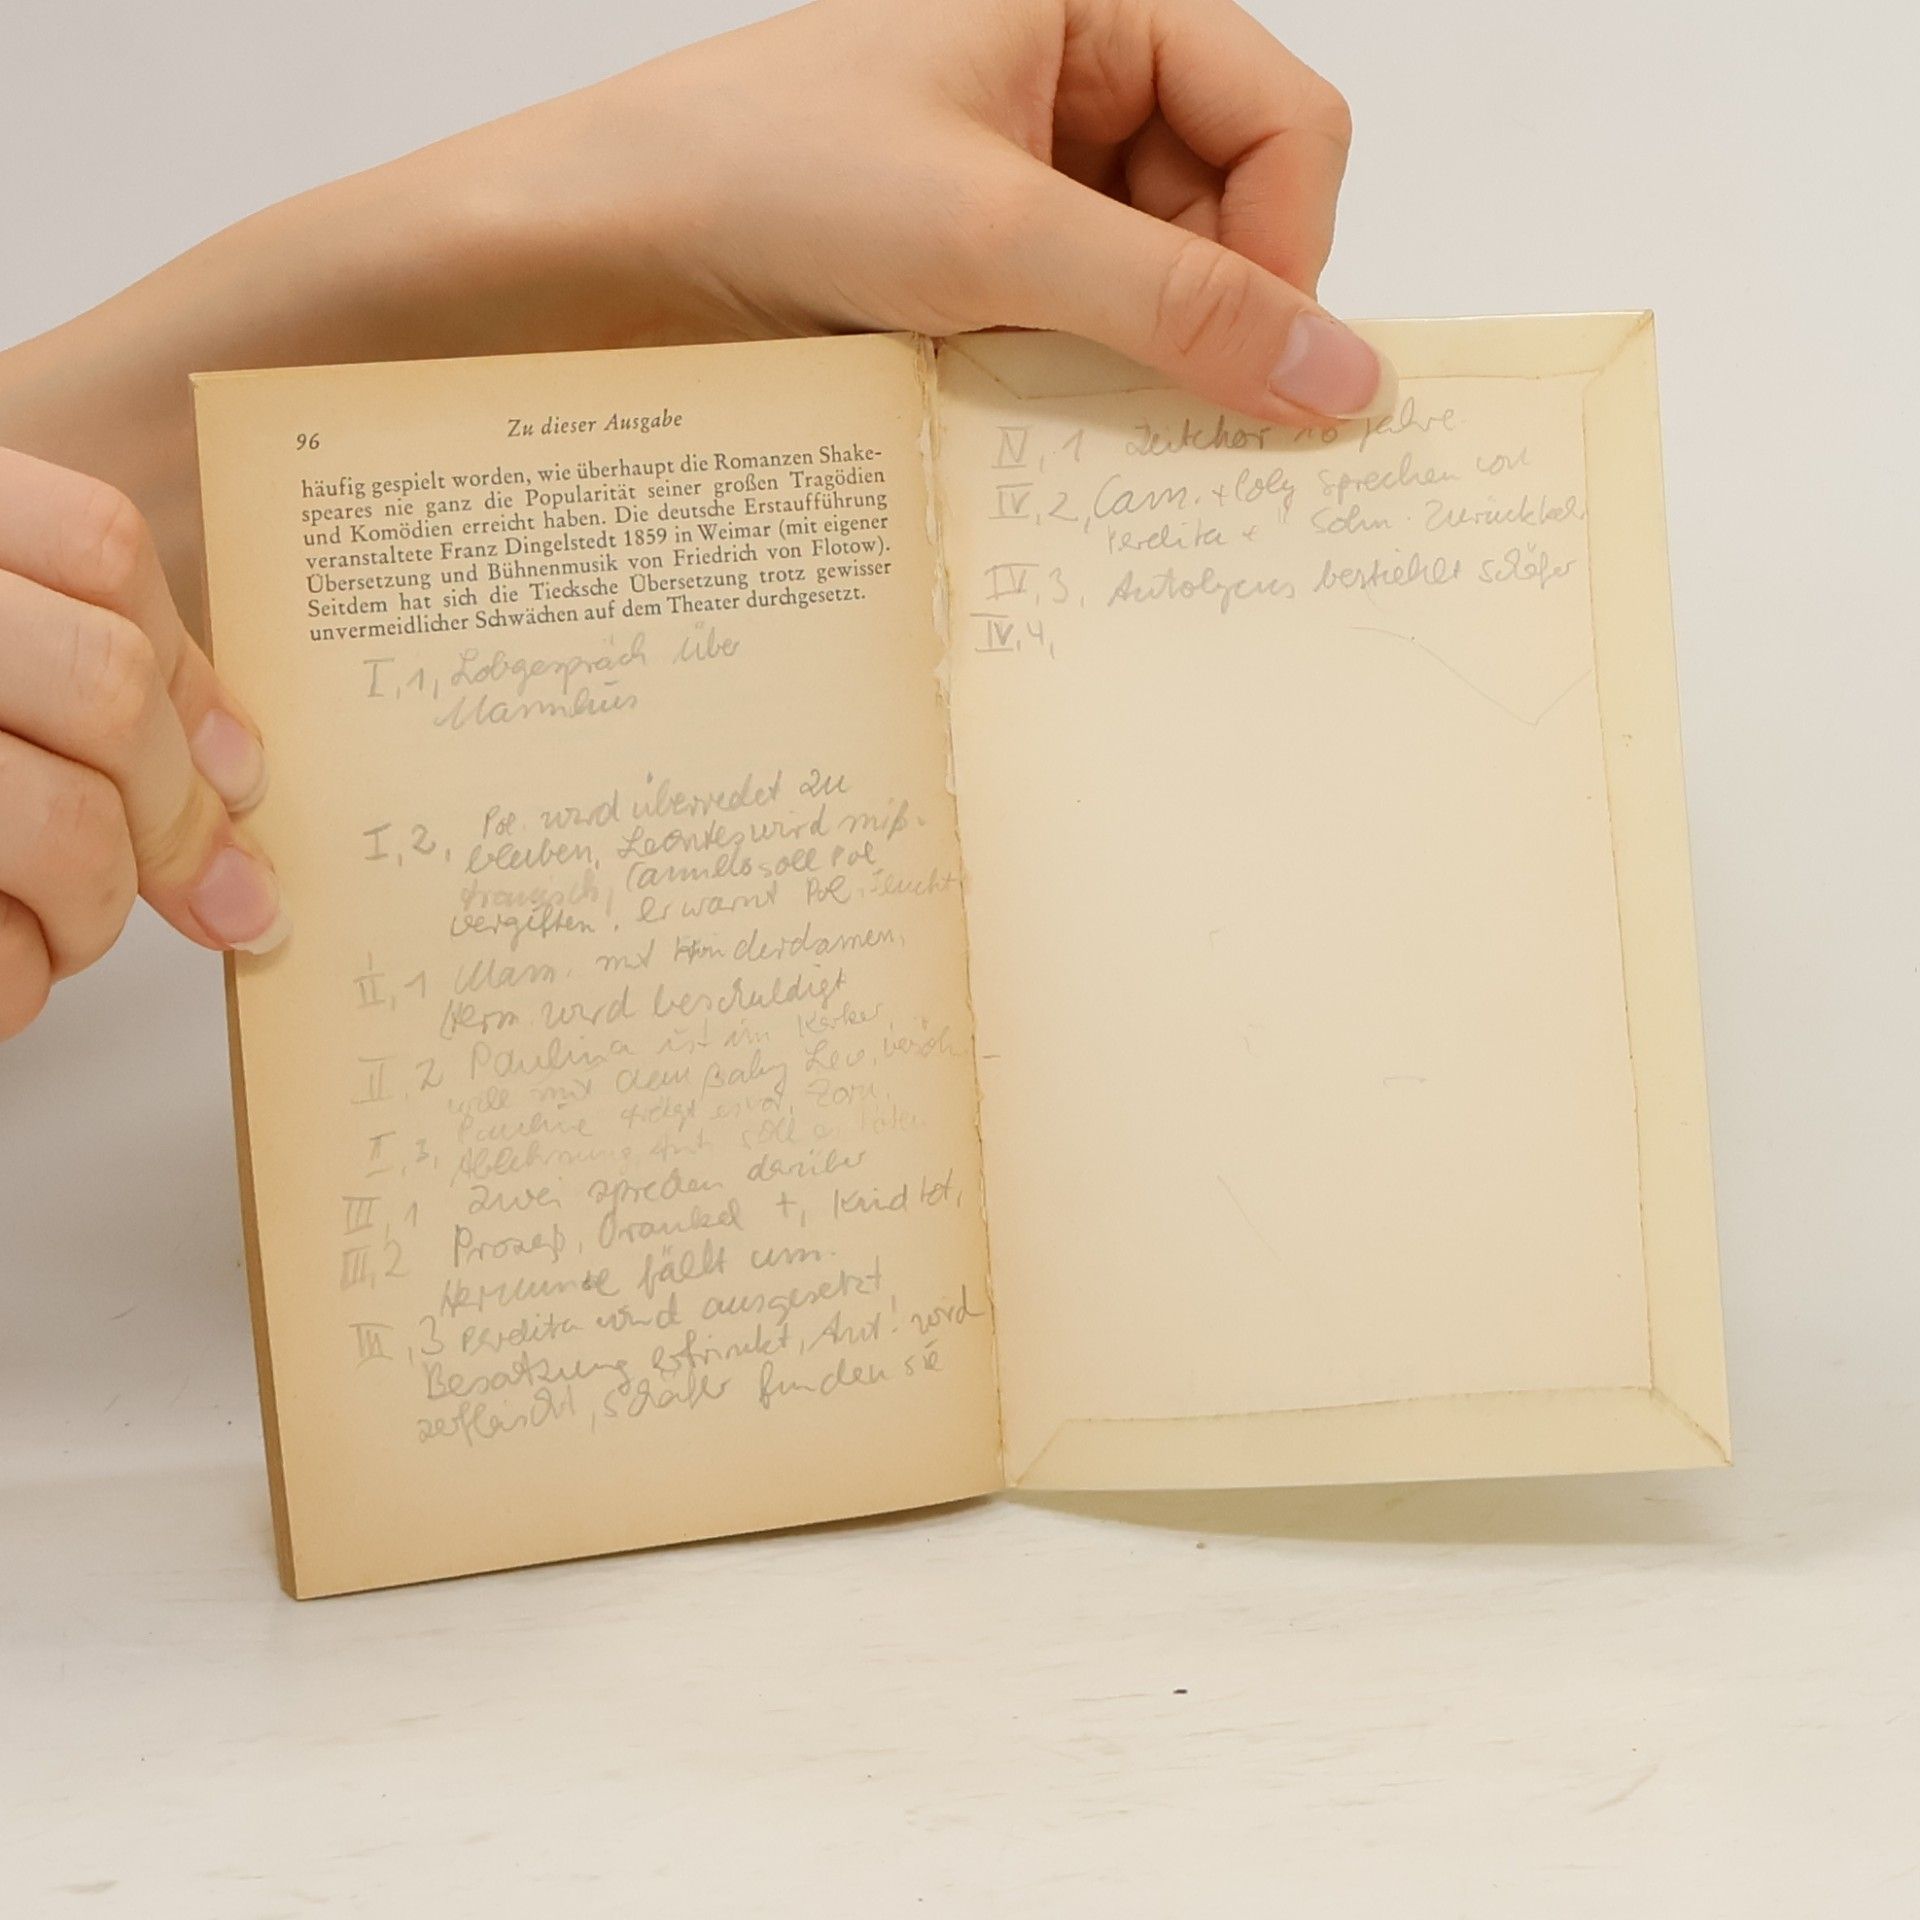 96
Zu dieser Ausgabe
häufig gespielt worden, wie überhaupt die Romanzen Shake-
speares nie ganz die Popularität seiner großen Tragödien
und Komödien erreicht haben. Die deutsche Erstaufführung
veranstaltete Franz Dingelstedt 1859 in Weimar (mit eigener
Übersetzung und Bühnenmusik von Friedrich von Flotow).
Seitdem hat sich die Tiecksche Übersetzung trotz gewisser
unvermeidlicher Schwächen auf dem Theater durchgesetzt.
I, 1, Lobgespräch über
I, 2, Pol. wird überredet zu
bleiben, Leontes wird miß-
trauisch, Camillo soll Pol
vergiften! Er warnt Pol.
II, 1 Mam. mit
Herm. wird beschuldigt
II, 2 Paulina ist im Kerker
will mit dem Baby Leo.
II, 3, Pauline trägt es vor, Zorn,
Ablehnung, Ant soll
III, 1 Zwei sprechen darüber
III, 2 Prozeß, Orankel +, Kind tot,
Hermine fällt um.
III, 3 Perdita wird ausgesetzt
Besatzung ertrinkt, Ant! wird
zerfleischt, Schäfer finden sie
IV, 1 Zeitchor 16 Jahre
IV, 2, Cam. + Poly sprechen von
Perdita + " Sohn.
IV, 3, Autolycus bestiehlt Schäfer
IV, 4,